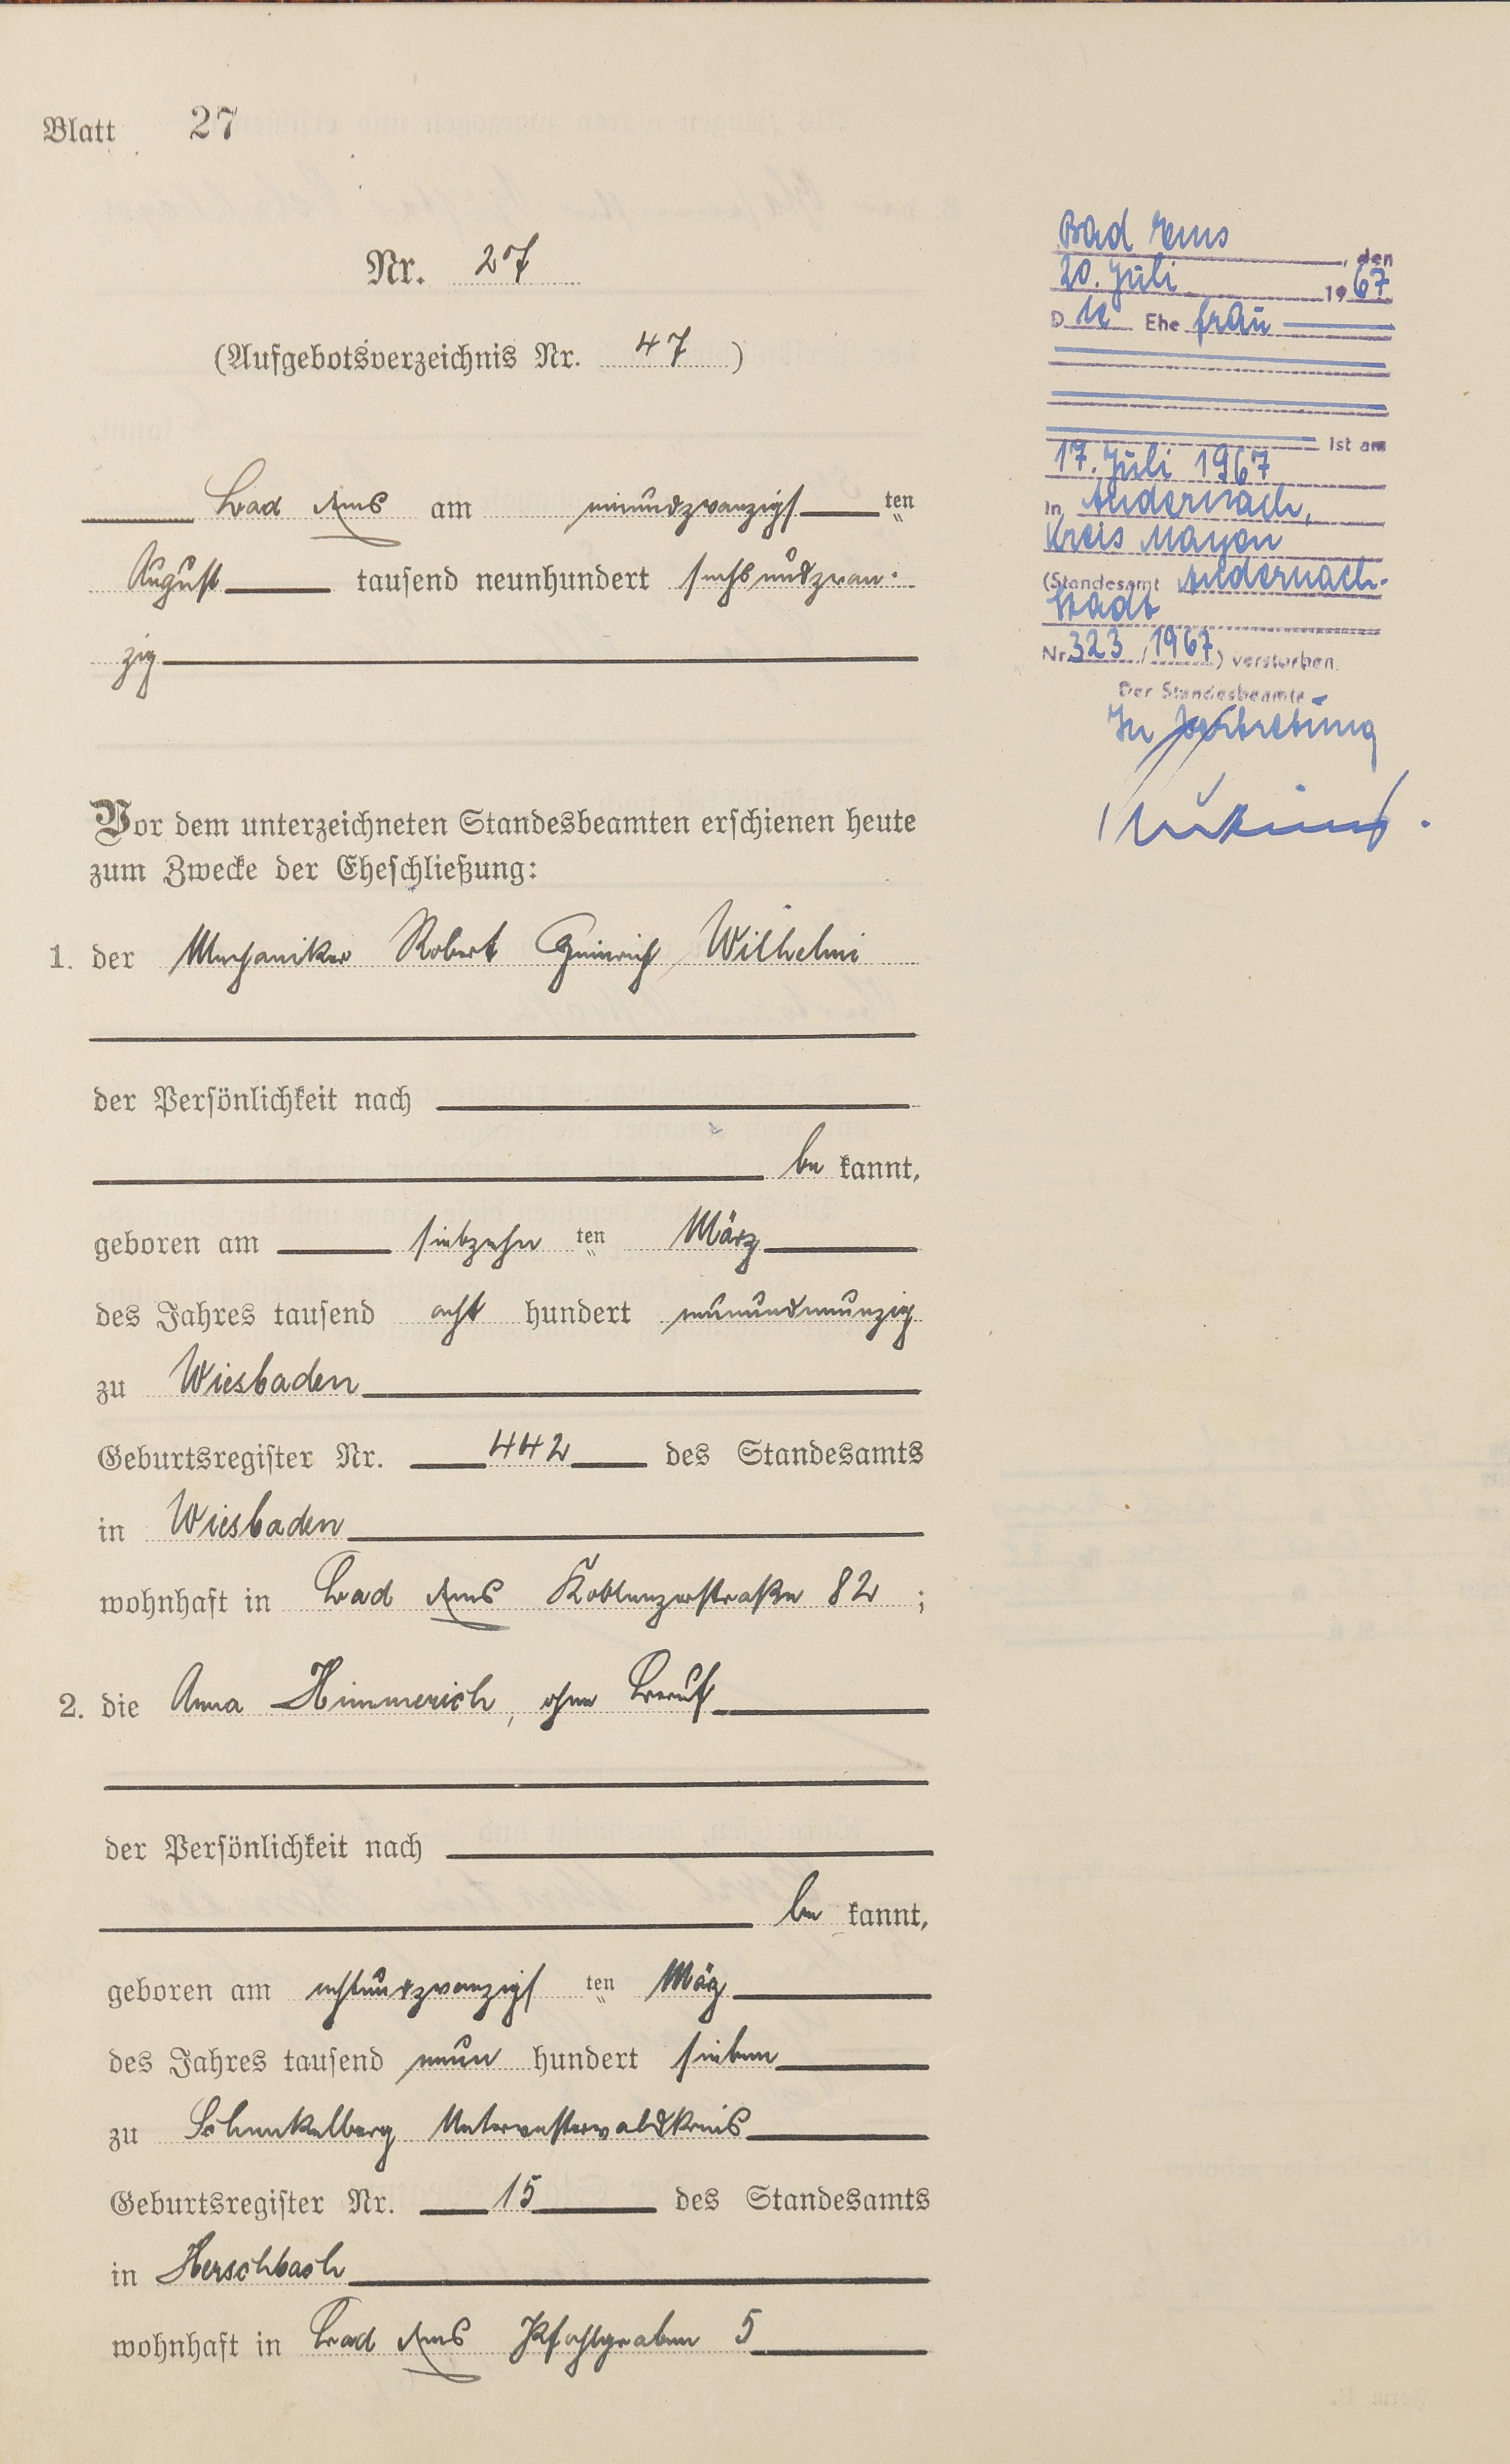 Blatt 27
Nr. 27
(Aufgebotsverzeichnis Nr. 47)
Bad Ems am einundzwanzigst ten
August tausend neunhundert sechsundzwan-
zig
Vor dem unterzeichneten Standesbeamten erschienen heute
zum Zwecke der Eheschließung:
1. der Mechaniker Robert Heinrich Wilhelmi
der Persönlichkeit nach
be kannt,
geboren am siebzehn ten März
des Jahres tausend acht hundert neunundneunzig
zu Wiesbaden
Geburtsregister Nr. 442 des Standesamts
in Wiesbaden
wohnhaft in Bad Ems Koblenzerstraße 82 ;
2. die Anna Himmerich, ohne Beruf
der Persönlichkeit nach
be kannt,
geboren am achtundzwanzigst ten März
des Jahres tausend neun hundert sieben
zu Schenkelberg Unterwesterwaldkreis
Geburtsregister Nr. 15 des Standesamts
in Herschbach
wohnhaft in Bad Ems Pfahlgraben 5
Bad Ems, den
20. Juli 1967
D ie Ehe frau
ist am
17. Juli 1967
in Andernach,
Kreis Mayen
(Standesamt Andernach-
Stadt
Nr. 323/1967) verstorben.
Der Standesbeamte
In Vertretung